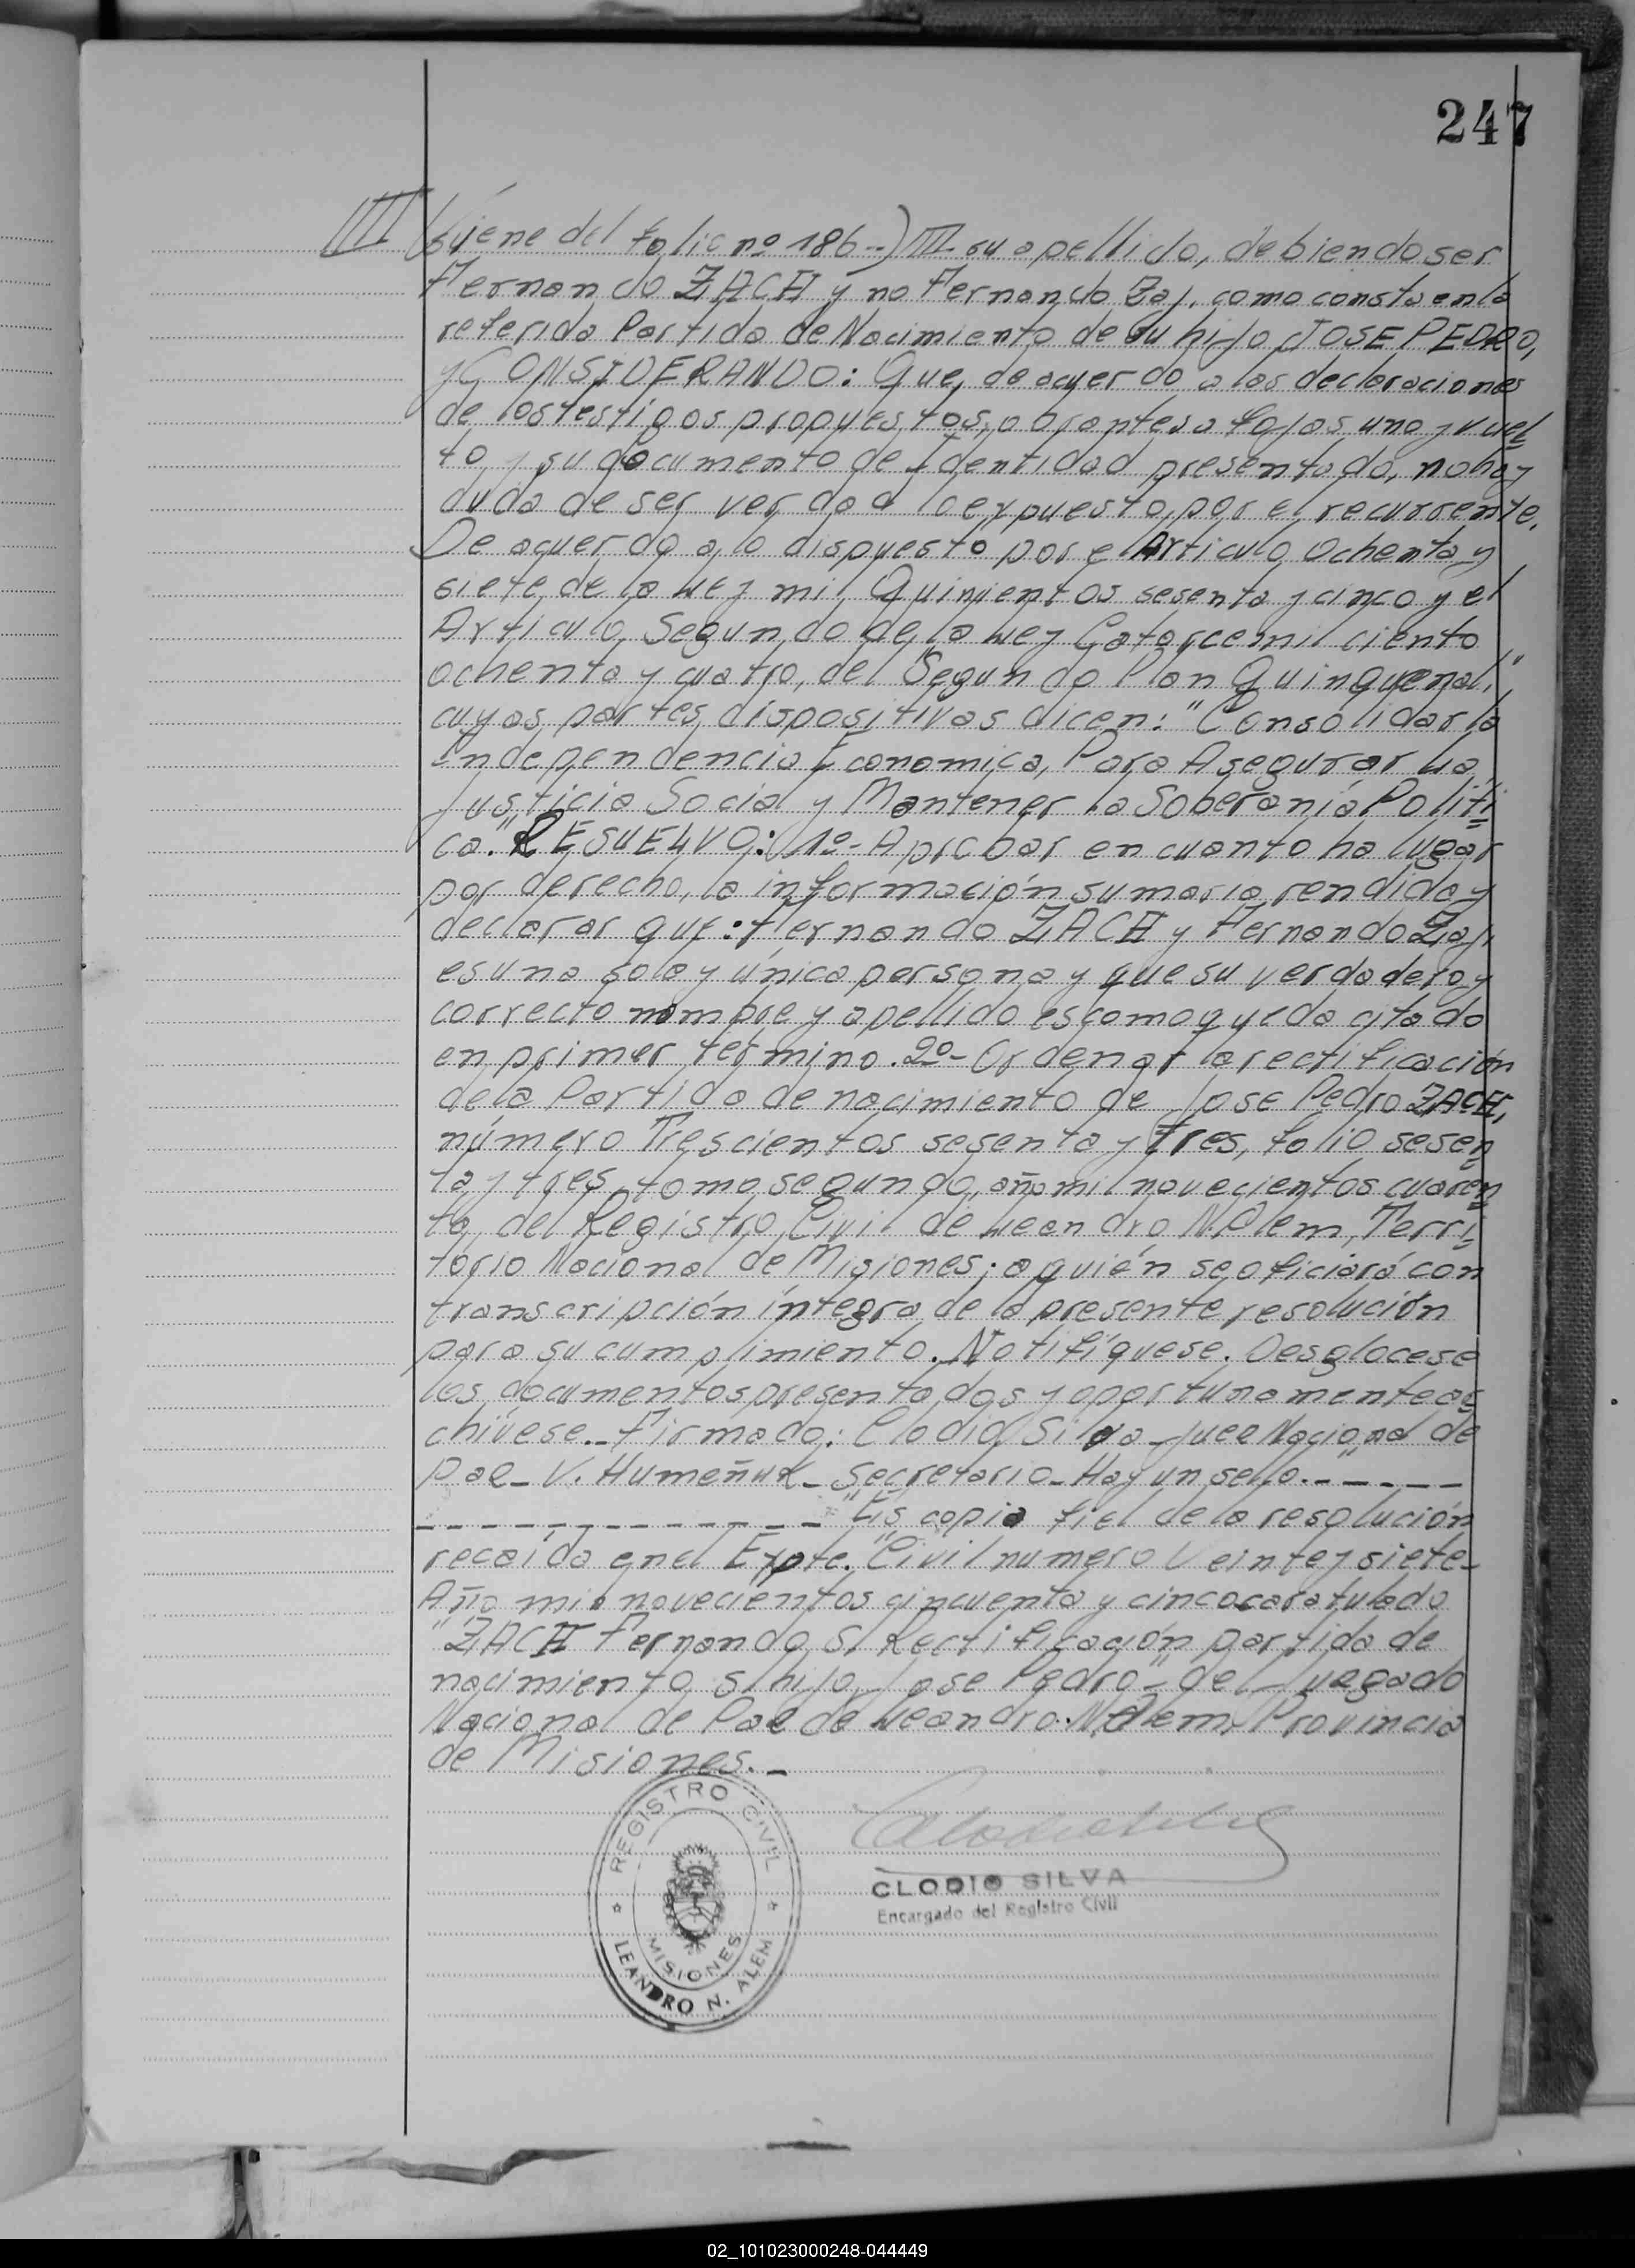 247
IIII (Viene del folio nº 186--) III- su apellido, debiendo ser
Fernando ZACH y no Fernando Zaj. como consta en la
referida Partida de Nacimiento de su hijo JOSE PEDRO,
y CONSIDERANDO: Que, de acuerdo a las declaraciones
de los testigos propuestos, obrantes a fojas uno y vuel
to, y su documento de Identidad presentado, no hay
duda de ser verdad lo expuesto, por el recurrente.
De acuerdo a lo dispuesto por el Articulo Ochenta y
siete, de la Ley mil Quinientos sesenta y cinco y el
Articulo Segundo de la Ley Catorce mil ciento
ochenta y cuatro, del "Segundo Plan Quinquenal,"
cuyas partes dispositivas dicen: "Consolidar la
Independencia Economica, Para Asegurar La
Justicia Social y Mantener la Soberanía Políti
ca." RESUELVO: 1º- Aprobar en cuanto ha lugar
por derecho, la información sumaria rendida y
declarar que: Fernando ZACH y Fernando Zaj,
es una sola y única persona y que su verdadero y
correcto nombre y apellido es como queda citado
en primer termino. 2º- Ordenar la rectificación
de la Partida de nacimiento de Jose Pedro ZACH,
número Trescientos sesenta y tres, folio sesen
ta y tres, tomo segundo, año mil novecientos cuaren
ta, del Registro Civil de Leandro N. Alem, Terri
torio Nacional de Misiones; a quién se oficiará con
transcripción íntegra de la presente resolución
para su cumplimiento. Notifíquese. Desglocese
los documentos presentados y oportunamente ar
chívese.- Firmado: Clodio Silva - Juez Nacional de
paz - V. Humeñuk - Secretario - Hay un sello.-----
------------- "Es copia fiel de la resolución
recaída en el Expte. "Civil numero Veinte y siete-
Año mil novecientos cincuenta y cinco caratulado
"ZACH Fernando S/ Rectificación partida de
nacimiento s/ hijo Jose Pedro" - del Juzgado
Nacional de Paz de Leandro N. Alem, Provincia
de Misiones.-
REGISTRO CIVIL
MISIONES
LEANDRO N. ALEM
CLODIO SILVA
Encargado del Registro Civil
02_101023000248-044449